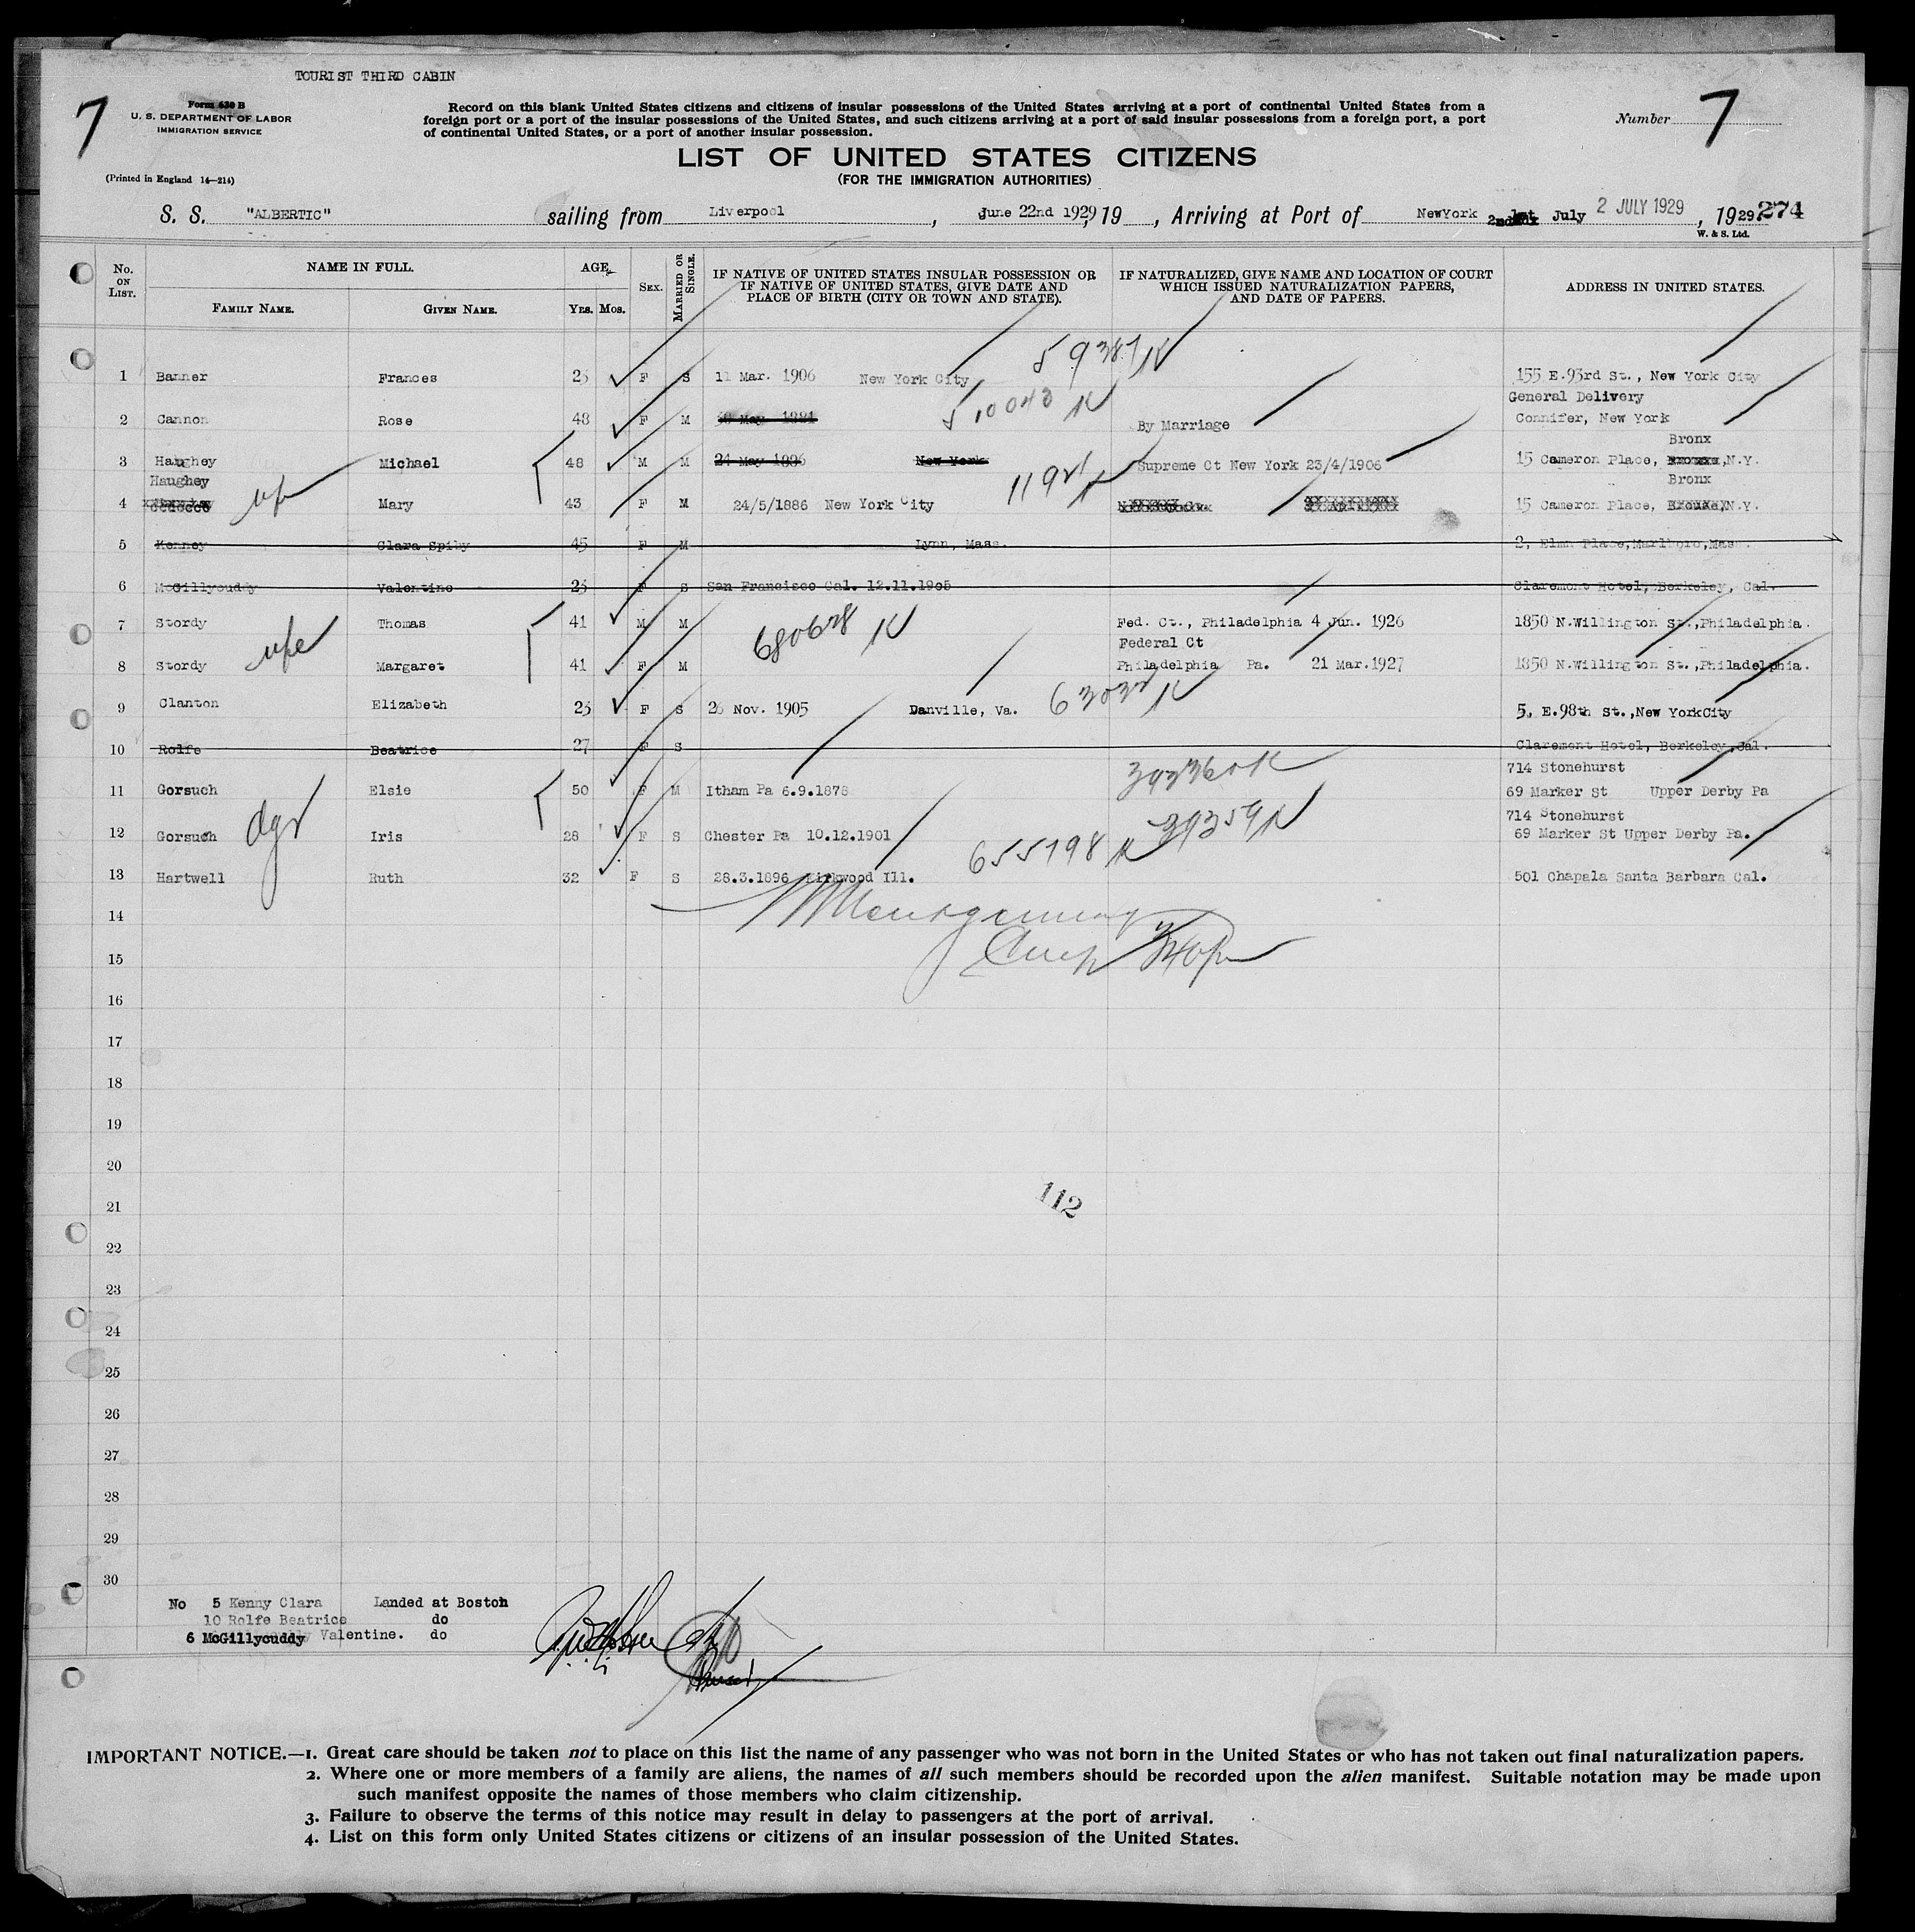 TOURIST THIRD CABIN
7
Form 630 B
U. S. DEPARTMENT OF LABOR
IMMIGRATION SERVICE
(Printed in England 14—214)
Record on this blank United States citizens and citizens of insular possessions of the United States arriving at a port of continental United States from a
foreign port or a port of the insular possessions of the United States, and such citizens arriving at a port of said insular possessions from a foreign port, a port
of continental United States, or a port of another insular possession.
Number 7
LIST OF UNITED STATES CITIZENS
(FOR THE IMMIGRATION AUTHORITIES)
S. S. "ALBERTIC" sailing from Liverpool, June 22nd 1929, 19 , Arriving at Port of NewYork 2nd July 2 JULY 1929, 1929 274
W. & S. Ltd.
No. ON LIST. NAME IN FULL. AGE. SEX. MARRIED OR SINGLE. IF NATIVE OF UNITED STATES INSULAR POSSESSION OR IF NATIVE OF UNITED STATES, GIVE DATE AND PLACE OF BIRTH (CITY OR TOWN AND STATE). IF NATURALIZED, GIVE NAME AND LOCATION OF COURT WHICH ISSUED NATURALIZATION PAPERS, AND DATE OF PAPERS. ADDRESS IN UNITED STATES.
FAMILY NAME. GIVEN NAME. Yrs. Mos.
59387 K
1 Banner Frances 23 F S 11 Mar. 1906 New York City 155 E.93rd St., New York City
510040 K
General Delivery
2 Cannon Rose 48 F M By Marriage Connifer, New York
Bronx
3 Haughey Michael 48 M M 24 May 1886 New York Supreme Ct New York 23/4/1906 15 Cameron Place, N.Y.
Haughey Bronx
4 Mary 43 F M 24/5/1886 New York City 15 Cameron Place, N.Y.
5 Kenney Clara Spiby 45 F M Lynn, Mass. 2, Elm Place, Marlboro, Mass.
6 McGillycuddy Valentine 23 F S San Francisco Cal. 12.11.1905 Claremont Hotel, Berkeley, Cal.
7 Stordy Thomas 41 M M Fed. Ct., Philadelphia 4 Jun. 1926 1850 N.Willington St.,Philadelphia.
Federal Ct
8 Stordy Margaret 41 F M Philadelphia Pa. 21 Mar.1927 1850 N.Willington St.,Philadelphia.
9 Clanton Elizabeth 23 F S 26 Nov. 1905 Danville, Va. 5, E.98th St.,New YorkCity
10 Rolfe Beatrice 27 F S Claremont Hotel, Berkeley, Cal.
714 Stonehurst
11 Gorsuch Elsie 50 F M Itham Pa 6.9.1878 69 Marker St Upper Derby Pa
714 Stonehurst
12 Gorsuch Iris 28 F S Chester Pa 10.12.1901 69 Marker St Upper Derby Pa.
655798 K
13 Hartwell Ruth 32 F S 28.3.1896 Kirkwood Ill. 501 Chapala Santa Barbara Cal.
14
15
16
17
18
19
20
112
21
22
23
24
25
26
27
28
29
30
No 5 Kenny Clara Landed at Boston
10 Rolfe Beatrice do
6 McGillycuddy Valentine. do
IMPORTANT NOTICE.—1. Great care should be taken not to place on this list the name of any passenger who was not born in the United States or who has not taken out final naturalization papers.
2. Where one or more members of a family are aliens, the names of all such members should be recorded upon the alien manifest. Suitable notation may be made upon
such manifest opposite the names of those members who claim citizenship.
3. Failure to observe the terms of this notice may result in delay to passengers at the port of arrival.
4. List on this form only United States citizens or citizens of an insular possession of the United States.